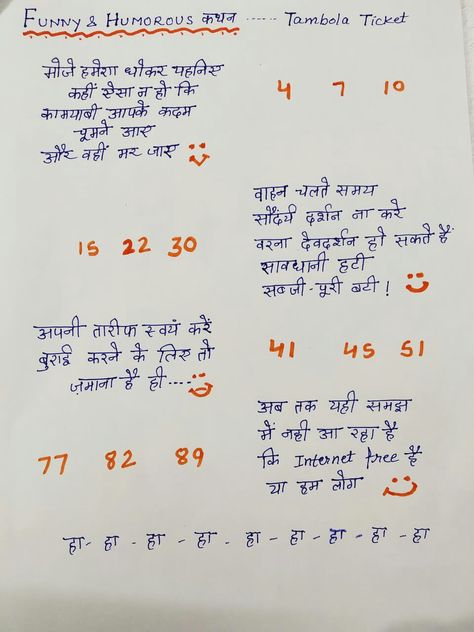 FUNNY & HUMOROUS कथन ----- TAMBOLA TICKET
मोजे हमेशा धोकर पहनिए
कहीं ऐसा न हो कि
कामयाबी आपके कदम
चूमने आए
और वहीं मर जाए
4 7 10
वाहन चलते समय
सौंदर्य दर्शन ना करे
वरना देवदर्शन हो सकते हैं
सावधानी हटी
सब्जी-पूरी बटी !
15 22 30
अपनी तारीफ स्वयं करें
बुराई करने के लिए तो
ज़माना है ही----
41 45 51
अब तक यही समझ
में नही आ रहा है
कि Internet free है
या हम लोग
77 82 89
हा- हा - हा - हा - हा - हा - हा - हा - हा